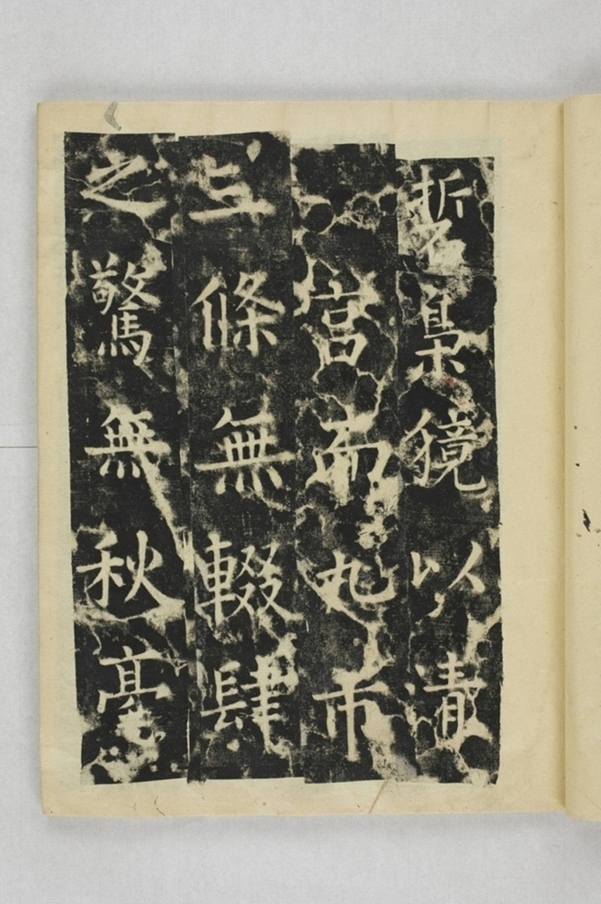 硩梟獍以清
宮而九市
三條無輟肆
之驚無秋亭